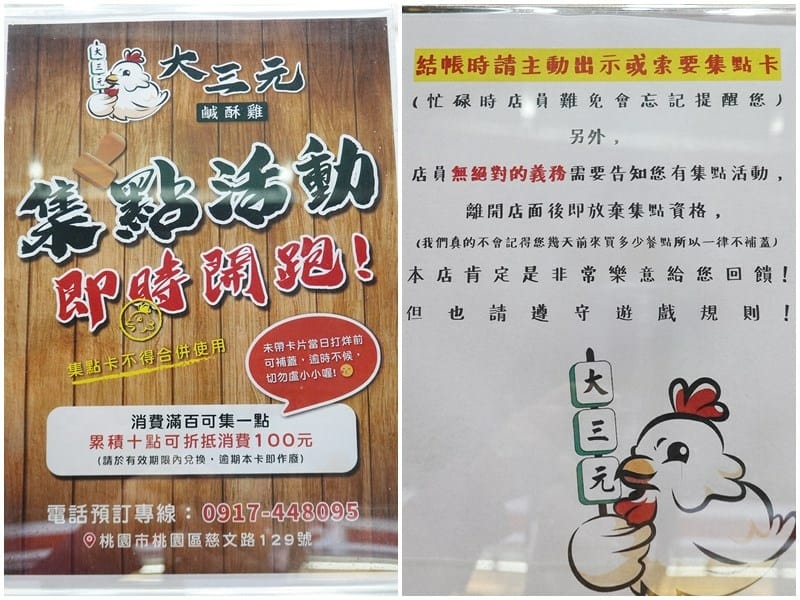 大三元
大三元
鹹酥雞
集點活動
即時開跑!
集點卡不得合併使用
未帶卡片當日打烊前
可補蓋,逾時不候,
切勿盧小小喔!
消費滿百可集一點
累積十點可折抵消費100元
(請於有效期限內兌換,逾期本卡即作廢)
電話預訂專線:0917-448095
桃園市桃園區慈文路129號
結帳時請主動出示或索要集點卡
(忙碌時店員難免會忘記提醒您)
另外,
店員無絕對的義務需要告知您有集點活動,
離開店面後即放棄集點資格,
(我們真的不會記得您幾天前來買多少餐點所以一律不補蓋)
本店肯定是非常樂意給您回饋!
但也請遵守遊戲規則!
大三元